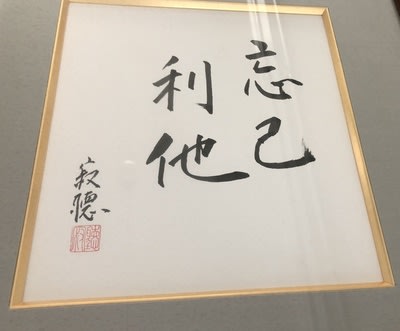 忘己
利他
寂聴